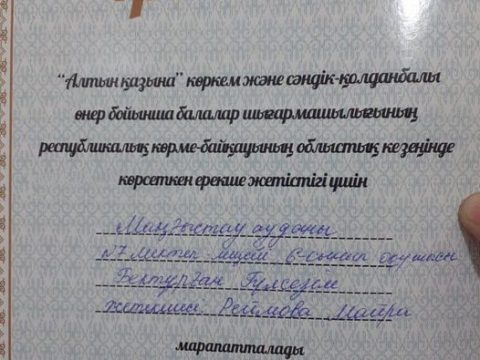 “Алтын қазына” көркем және сәндік-қолданбалы
өнер бойынша балалар шығармашылығының
республикалық көрме-байқауының облыстық кезеңінде
көрсеткен ерекше жетістігі үшін
Маңғыстау ауданы
№7 мектеп лицей 6-сынып оқушысы
Бектурған Гүлсезім
жетекшісі Реймова Майра
марапатталады